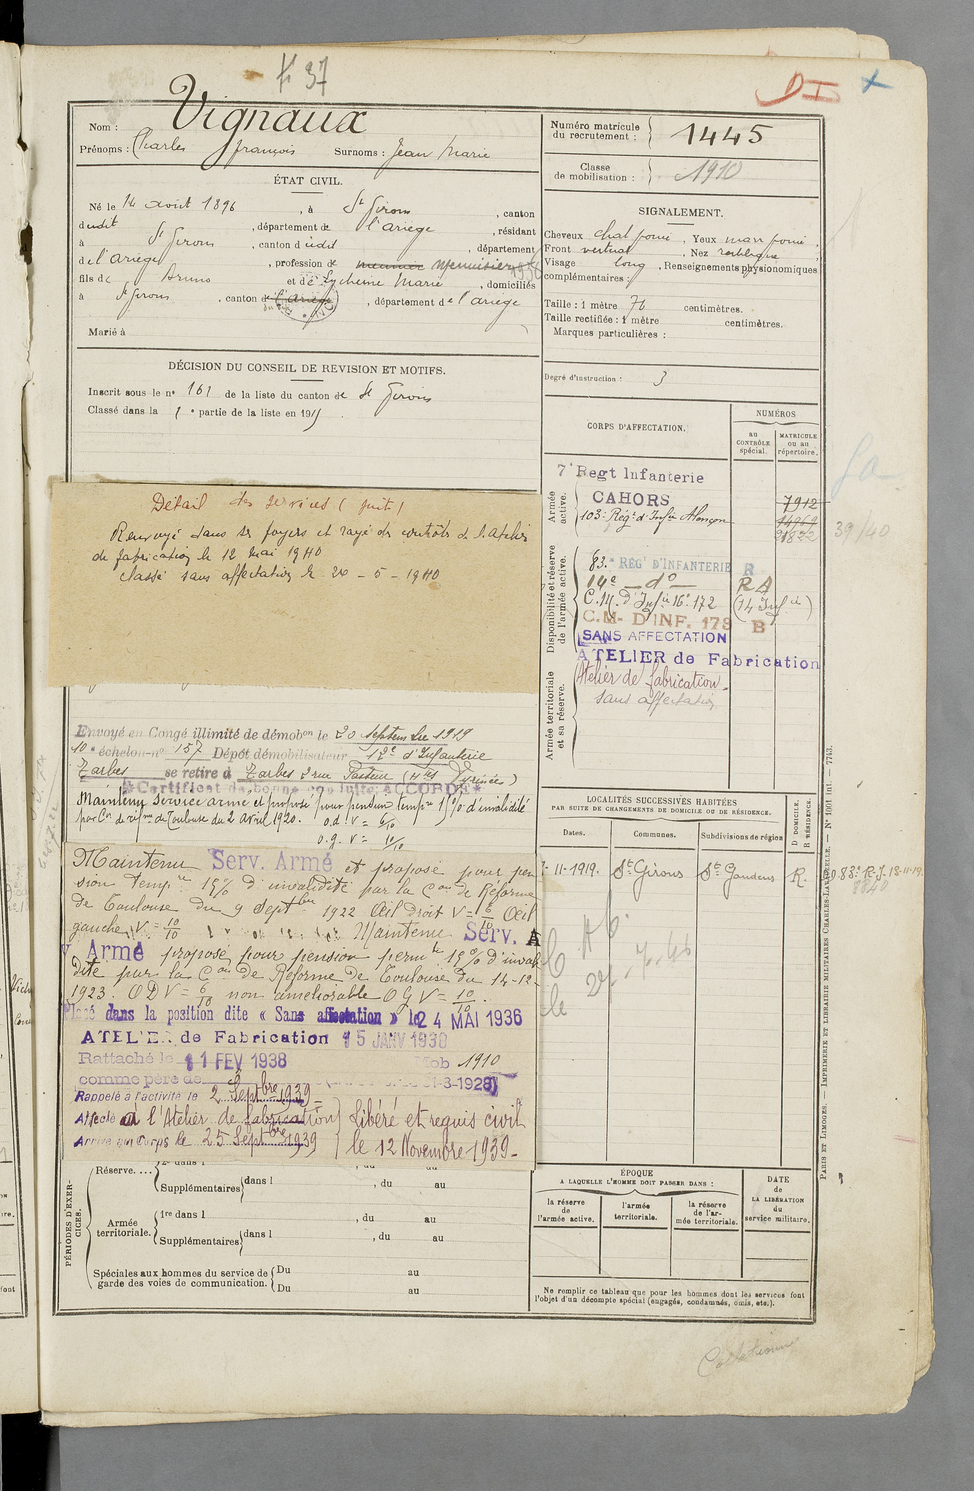 F 37
DI +
Nom : Vignaux
Prénoms : Charles françois Surnoms : Jean Marie
Numéro matricule du recrutement : 1445
Classe de mobilisation : 1910
ÉTAT CIVIL.
Né le 14 août 1896, à St Girons, canton
dudit, département de l'ariège, résidant
à St Girons, canton dudit, département
de l'ariège, profession de menuisier
fils de Bruno et de Eychenne Marie, domiciliés
à St Girons, canton de l'ariège, département de l'ariège
Marié à
SIGNALEMENT.
Cheveux chat foncé, Yeux marr foncé,
Front vertical, Nez rectiligne
Visage long, Renseignements physionomiques
complémentaires :
Taille : 1 mètre 76 centimètres.
Taille rectifiée : 1 mètre centimètres.
Marques particulières :
Degré d'instruction : 3
DÉCISION DU CONSEIL DE REVISION ET MOTIFS.
Inscrit sous le n° 161 de la liste du canton de St Girons
Classé dans la 1e partie de la liste en 1915
Détail des services (suite)
Renvoyé dans ses foyers et rayé des contrôles de l'atelier
de fabrication le 12 mai 1940
Classé sans affectation le 20 - 5 - 1940
CORPS D'AFFECTATION.
NUMÉROS
au CONTRÔLE spécial.
MATRICULE ou au répertoire.
Armée active.
7e Regt Infanterie
CAHORS
7912
103e Régt d'Infie Alençon
Disponibilité et réserve de l'armée active.
83e REG' D'INFANTERIE R
14e — do — RA
C.M. d'Infie 16e 172 (14 Infie)
C.M- D'INF. 178 B
SANS AFFECTATION
ATELIER de Fabrication
Armée territoriale et sa réserve.
Atelier de fabrication.
Sans affectation
39/40
Envoyé en Congé illimité de démobon le 20 septembre 1919
10e échelon-n° 157 Dépôt démobilisateur 12e d'Infanterie
Tarbes se retire à Tarbes 2 rue Pasteur (Htes Pyrénées)
Certificat de bonne conduite ACCORDÉ
Maintenu Service armé et proposé pour pension tempre 10% d'invalidité
par Con de réforme de Toulouse du 2 Avril 1920. o.d. V = 6/10
o.g. V = 10/10
Maintenu Serv. Armé et proposé pour pen
sion tempre 15% d'invalidité par la Con de Réforme
de Toulouse du 9 Septbre 1922 Œil droit V = 6/10 Œil
gauche V = 10/10 Maintenu Serv. A
Armé proposé pour pension permte 15% d'invali
dité par la Con de Réforme de Toulouse du 14-12-
1923. ODV = 6/10 non améliorable OGV = 10/10.
Placé dans la position dite « Sans affectation » le 24 MAI 1936
ATELIER de Fabrication 15 JANV 1938
Rattaché le 11 FEV 1938 Mob 1910
comme père de 31-3-1928)
Rappelé à l'activité le 2 Septbre 1939
Affecté à l'Atelier de fabrication
Arrivé au Corps le 25 Septbre 1939
Libéré et requis civil
le 12 Novembre 1939-
LOCALITÉS SUCCESSIVES HABITÉES
PAR SUITE DE CHANGEMENTS DE DOMICILE OU DE RÉSIDENCE.
Dates. Communes. Subdivisions de région D. DOMICILE. R. RÉSIDENCE.
11-1919. St Girons St Gaudens R.
83e R.I. 18-11-19
27.7.40
PÉRIODES D'EXERCICES.
Réserve....
Supplémentaires dans l , du au
Armée territoriale.
1re dans l , du au
Supplémentaires dans l , du au
Spéciales aux hommes du service de garde des voies de communication.
Du au
Du au
ÉPOQUE
A LAQUELLE L'HOMME DOIT PASSER DANS :
la réserve de l'armée active.
l'armée territoriale.
la réserve de l'armée territoriale.
DATE de LA LIBÉRATION du service militaire.
Ne remplir ce tableau que pour les hommes dont les services font
l'objet d'un décompte spécial (engagés, condamnés, omis, etc.).
PARIS ET LIMOGES. — IMPRIMERIE ET LIBRAIRIE MILITAIRES CHARLES-LAVAUZELLE. — N° 1001 int. — 7743.
Collationné